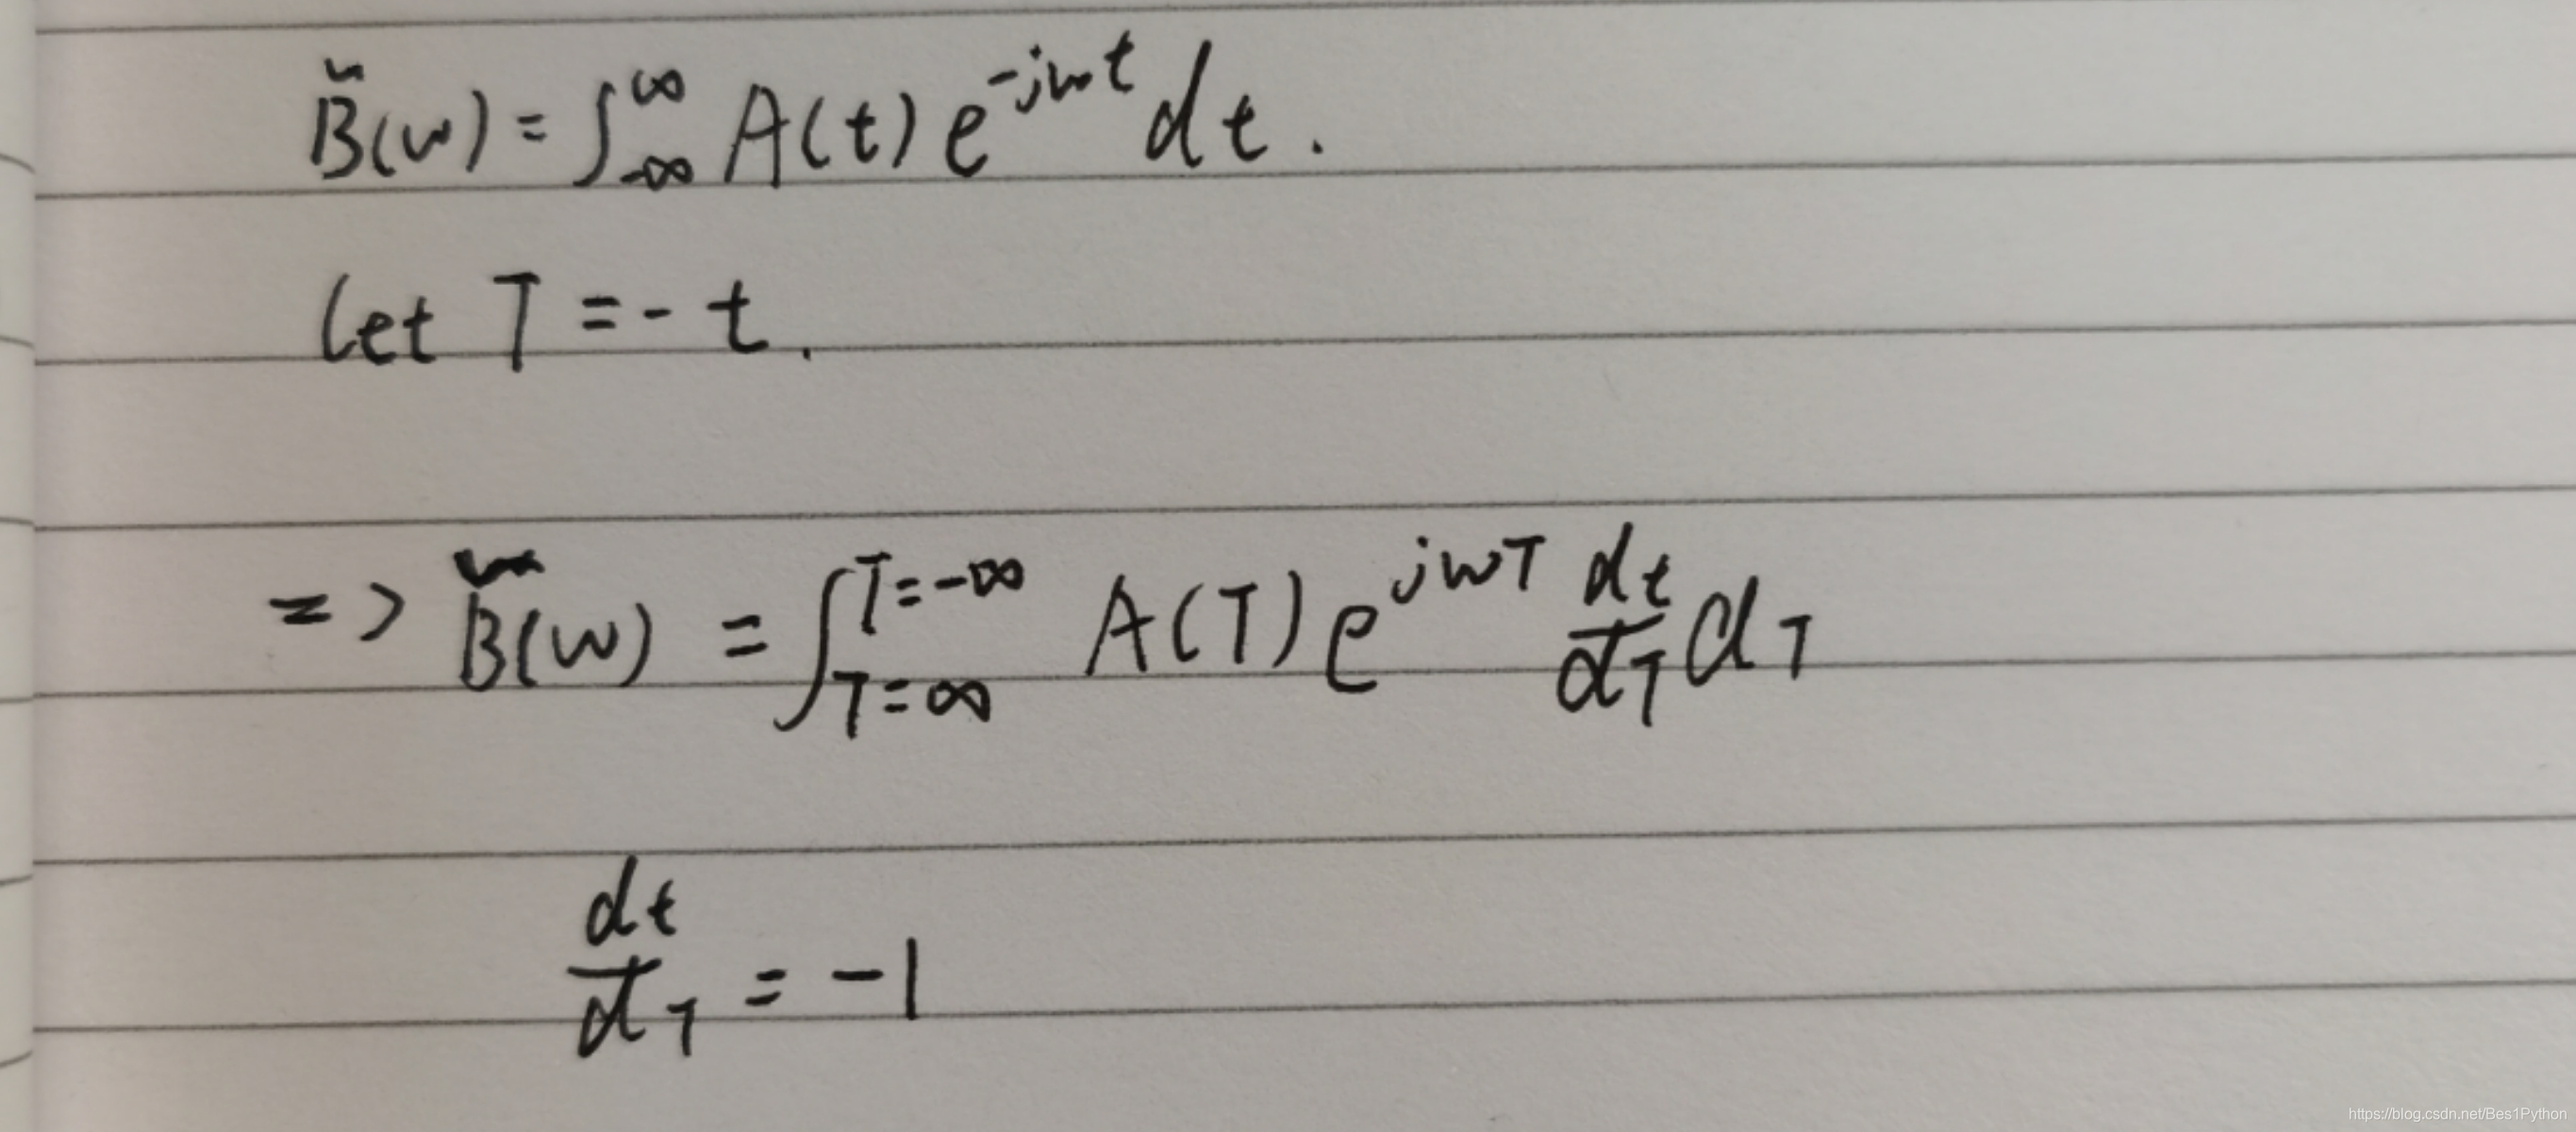 B̃(w) = ∫_{-∞}^{∞} A(t) e^{-jwt} dt.
let T = - t.
=> B̃(w) = ∫_{T=∞}^{T=-∞} A(T) e^{jwT} \frac{dt}{dT} dT
\frac{dt}{dT} = -1
https://blog.csdn.net/Bes1Python